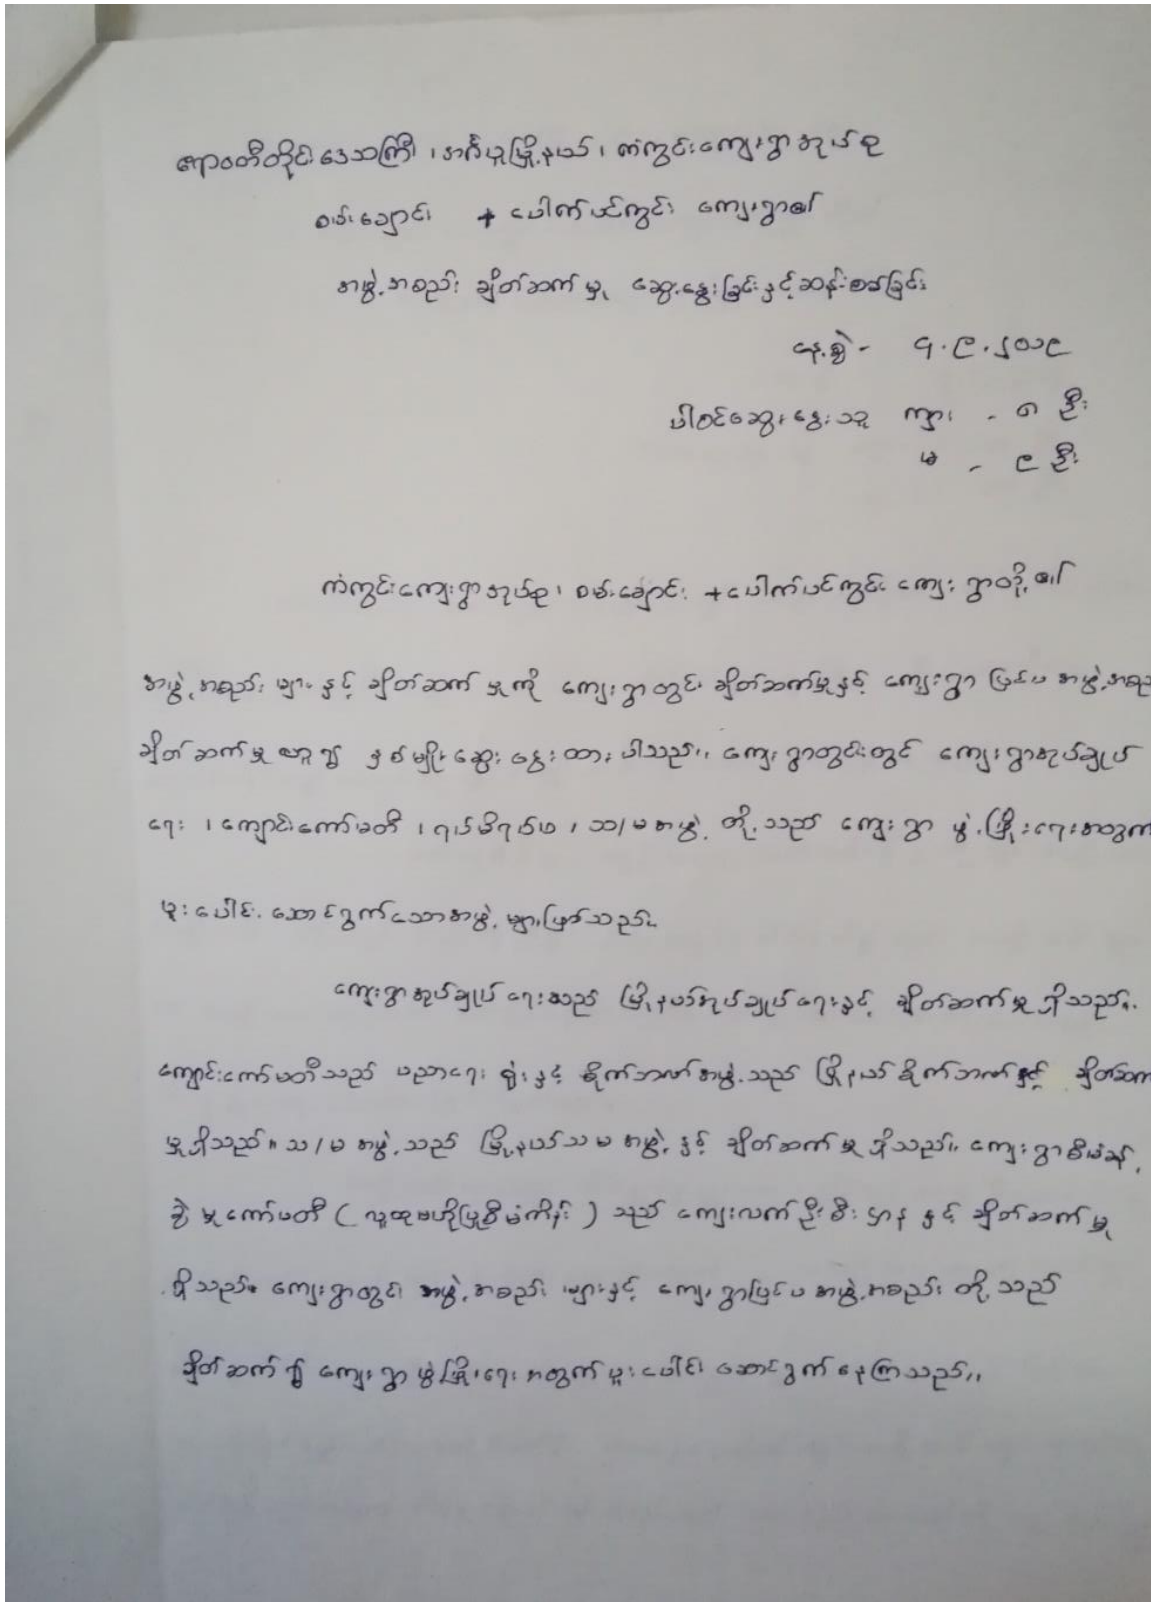 ဧရာဝတီတိုင်းဒေသကြီး ၊ အင်္ဂပူမြို့နယ် ၊ ကံကွင်းကျေးရွာအုပ်စု
စမ်းချောင်း + ပေါက်ပင်ကွင်း ကျေးရွာ၏
အဖွဲ့အစည်း ချိတ်ဆက်မှု ဆွေးနွေးခြင်းနှင့်ဆန်းစစ်ခြင်း
နေ့စွဲ - ၄.၉.၂၀၁၉
ပါဝင်ဆွေးနွေးသူ ကျား - ၈ ဦး
မ - ၉ ဦး
ကံကွင်းကျေးရွာအုပ်စု ၊ စမ်းချောင်း + ပေါက်ပင်ကွင်း ကျေးရွာတို့၏
အဖွဲ့အစည်းများနှင့် ချိတ်ဆက်မှုကို ကျေးရွာတွင်း ချိတ်ဆက်မှုနှင့် ကျေးရွာ ပြင်ပ အဖွဲ့အစည်
ချိတ်ဆက်မှု ဟူ၍ နှစ်မျိုးဆွေးနွေးထားပါသည်။ ကျေးရွာတွင်းတွင် ကျေးရွာအုပ်ချုပ်
ရေး ၊ ကျောင်းကော်မတီ ၊ ရပ်မိရပ်ဖ ၊ သ/မအဖွဲ့ တို့သည် ကျေးရွာ ဖွံ့ဖြိုးရေးအတွက်
ပူးပေါင်း ဆောင်ရွက်သောအဖွဲ့များဖြစ်သည်။
ကျေးရွာအုပ်ချုပ်ရေးသည် မြို့နယ်အုပ်ချုပ်ရေးနှင့် ချိတ်ဆက်မှုရှိသည်။
ကျောင်းကော်မတီသည် ပညာရေး ရုံးနှင့် စိုက်ဘဏ်အဖွဲ့သည် မြို့နယ်စိုက်ဘဏ်နှင့် ချိတ်ဆက်
မှုရှိသည်။ သ/မ အဖွဲ့သည် မြို့နယ်သမ အဖွဲ့နှင့် ချိတ်ဆက်မှုရှိသည်။ ကျေးရွာစီမံခန့်
ခွဲမှုကော်မတီ ( လူထုဗဟိုပြုစီမံကိန်း ) သည် ကျေးလက်ဦးစီးဌာနနှင့် ချိတ်ဆက်မှု
ရှိသည်။ ကျေးရွာတွင်း အဖွဲ့အစည်းများနှင့် ကျေးရွာပြင်ပ အဖွဲ့အစည်းတို့သည်
ချိတ်ဆက်၍ ကျေးရွာ ဖွံ့ဖြိုးရေးအတွက် ပူးပေါင်းဆောင်ရွက်နေကြသည်။